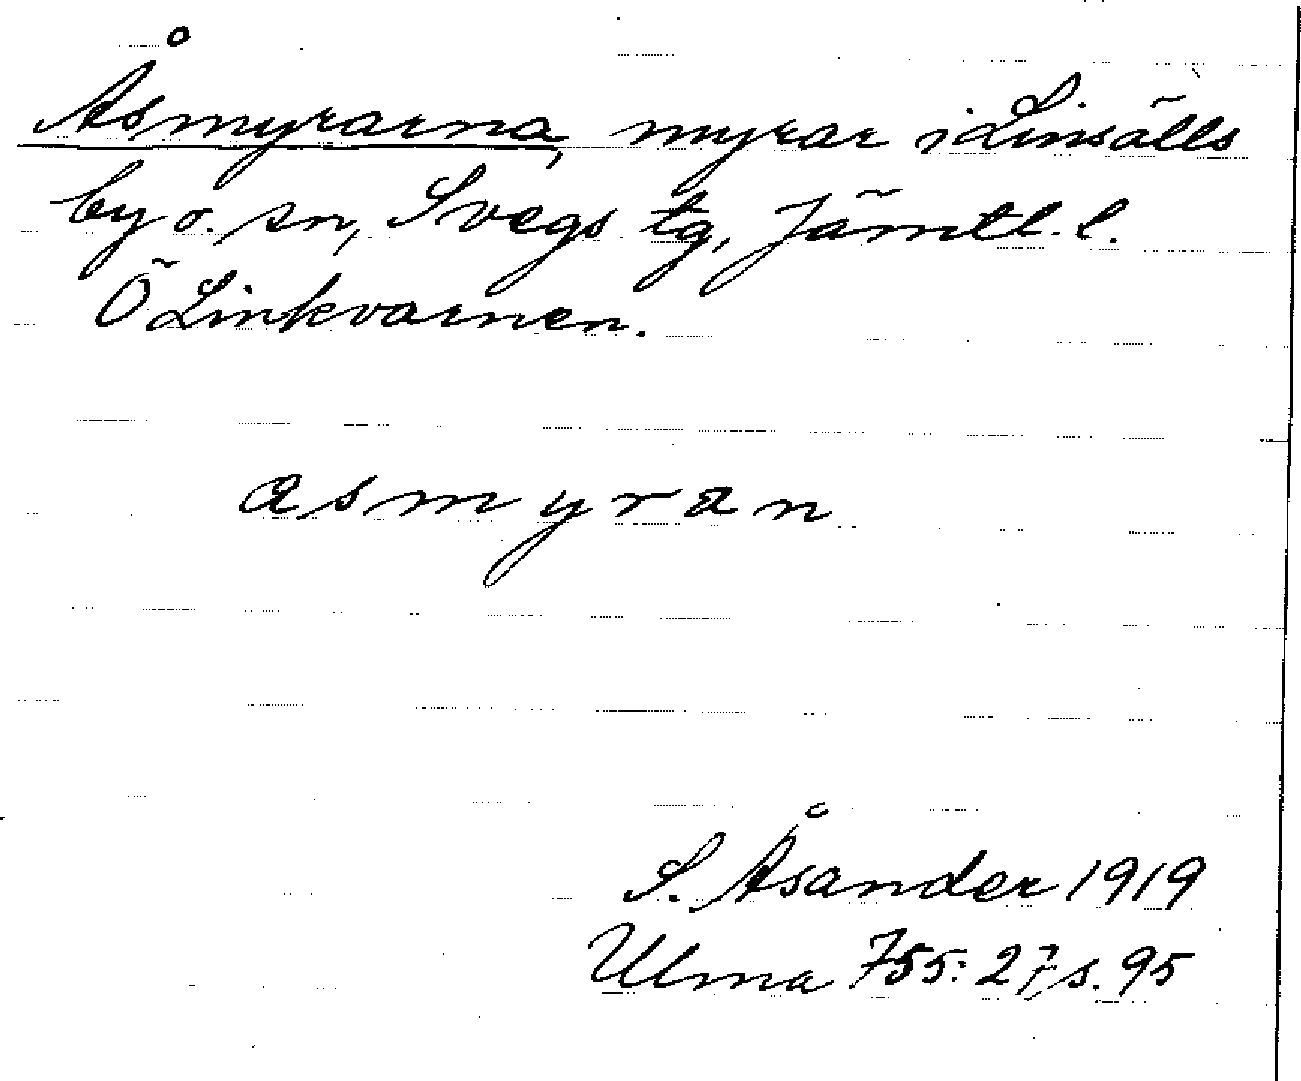 Åsmyrarna, myrar i Linsälls
by o. sn, Svegs tg, Jämtl. l.
Ö Linkvarnen.
asmyran
S. Åsander 1919
Ulma 755:27, s. 95